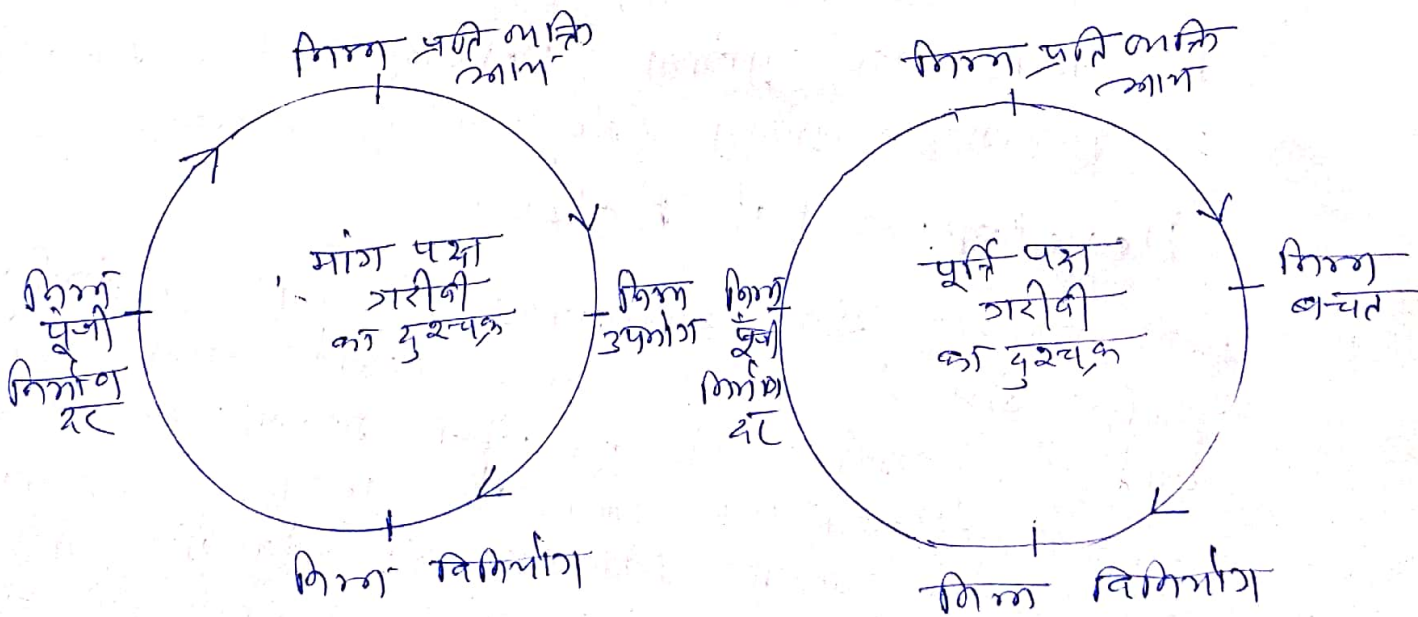 निम्न प्रति व्यक्ति
आय
मांग पक्ष
गरीबी
का दुश्चक्र
निम्न
उपभोग
निम्न विनियोग
निम्न
पूंजी
निर्माण
दर
निम्न प्रति व्यक्ति
आय
पूर्ति पक्ष
गरीबी
का दुश्चक्र
निम्न
बचत
निम्न विनियोग
निम्न
पूँजी
निर्माण
दर